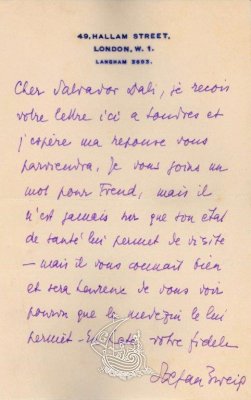 49, HALLAM STREET,
LONDON, W. 1.
LANGHAM 3693.
Cher Salvador Dali, je reçois
votre lettre ici a Londres et
j'espère ma reponse vous
parviendra. Je vous joins un
mot pour Freud, mais il
n'est jamais sur que son état
de santé lui permet de visite
— mais il vous connait bien
et sera heureux de vous voir
pourvu que le medecin le lui
permet — En hate, votre fidele
Stefan Zweig